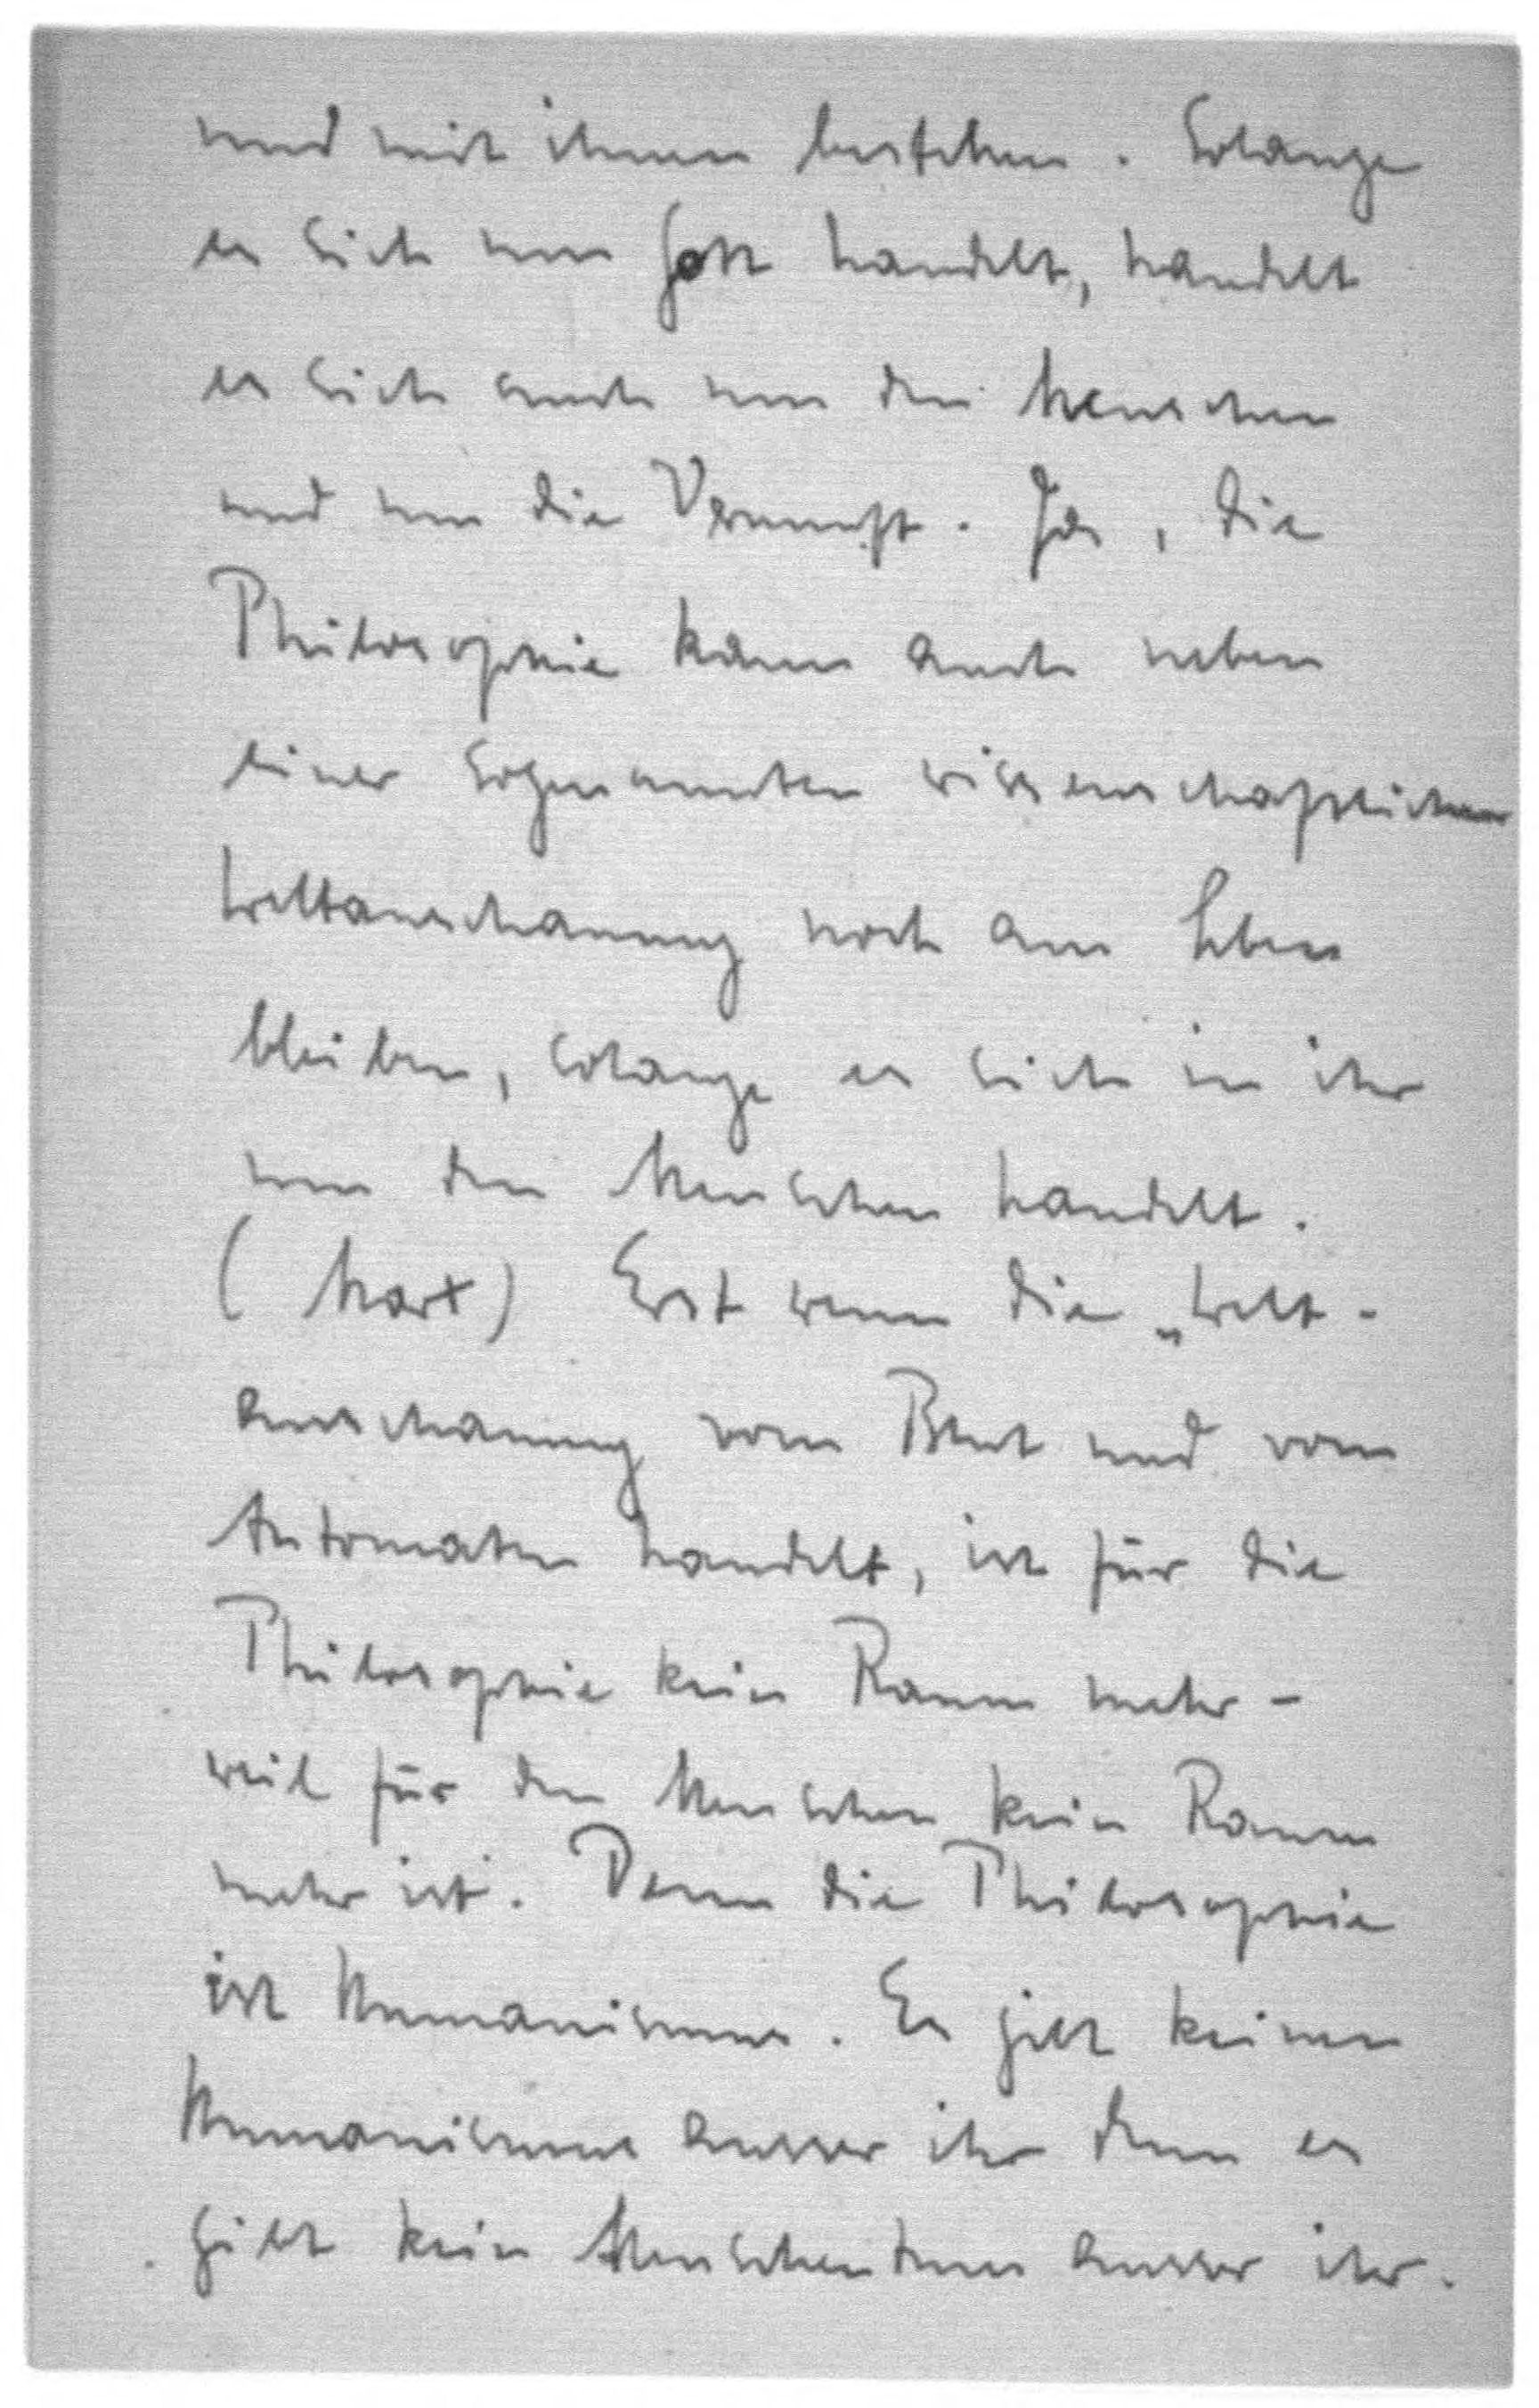 und mit ihnen bestehen. Solange
es sich um Gott handelt, handelt
es sich auch um den Menschen
und um die Vernunft. Ja, die
Philosophie kann auch neben
einer sogenannten wissenschaftlichen
Weltanschauung noch am Leben
bleiben, solange es sich in ihr
um den Menschen handelt.
(Marx) Erst wenn die „Welt-
anschauung vom Blut und vom
Automaten handelt, ist für die
Philosophie kein Raum mehr –
weil für den Menschen kein Raum
mehr ist. Denn die Philosophie
ist Humanismus. Es gibt keinen
Humanismus ausser ihr denn es
gibt kein Menschentum ausser ihr.